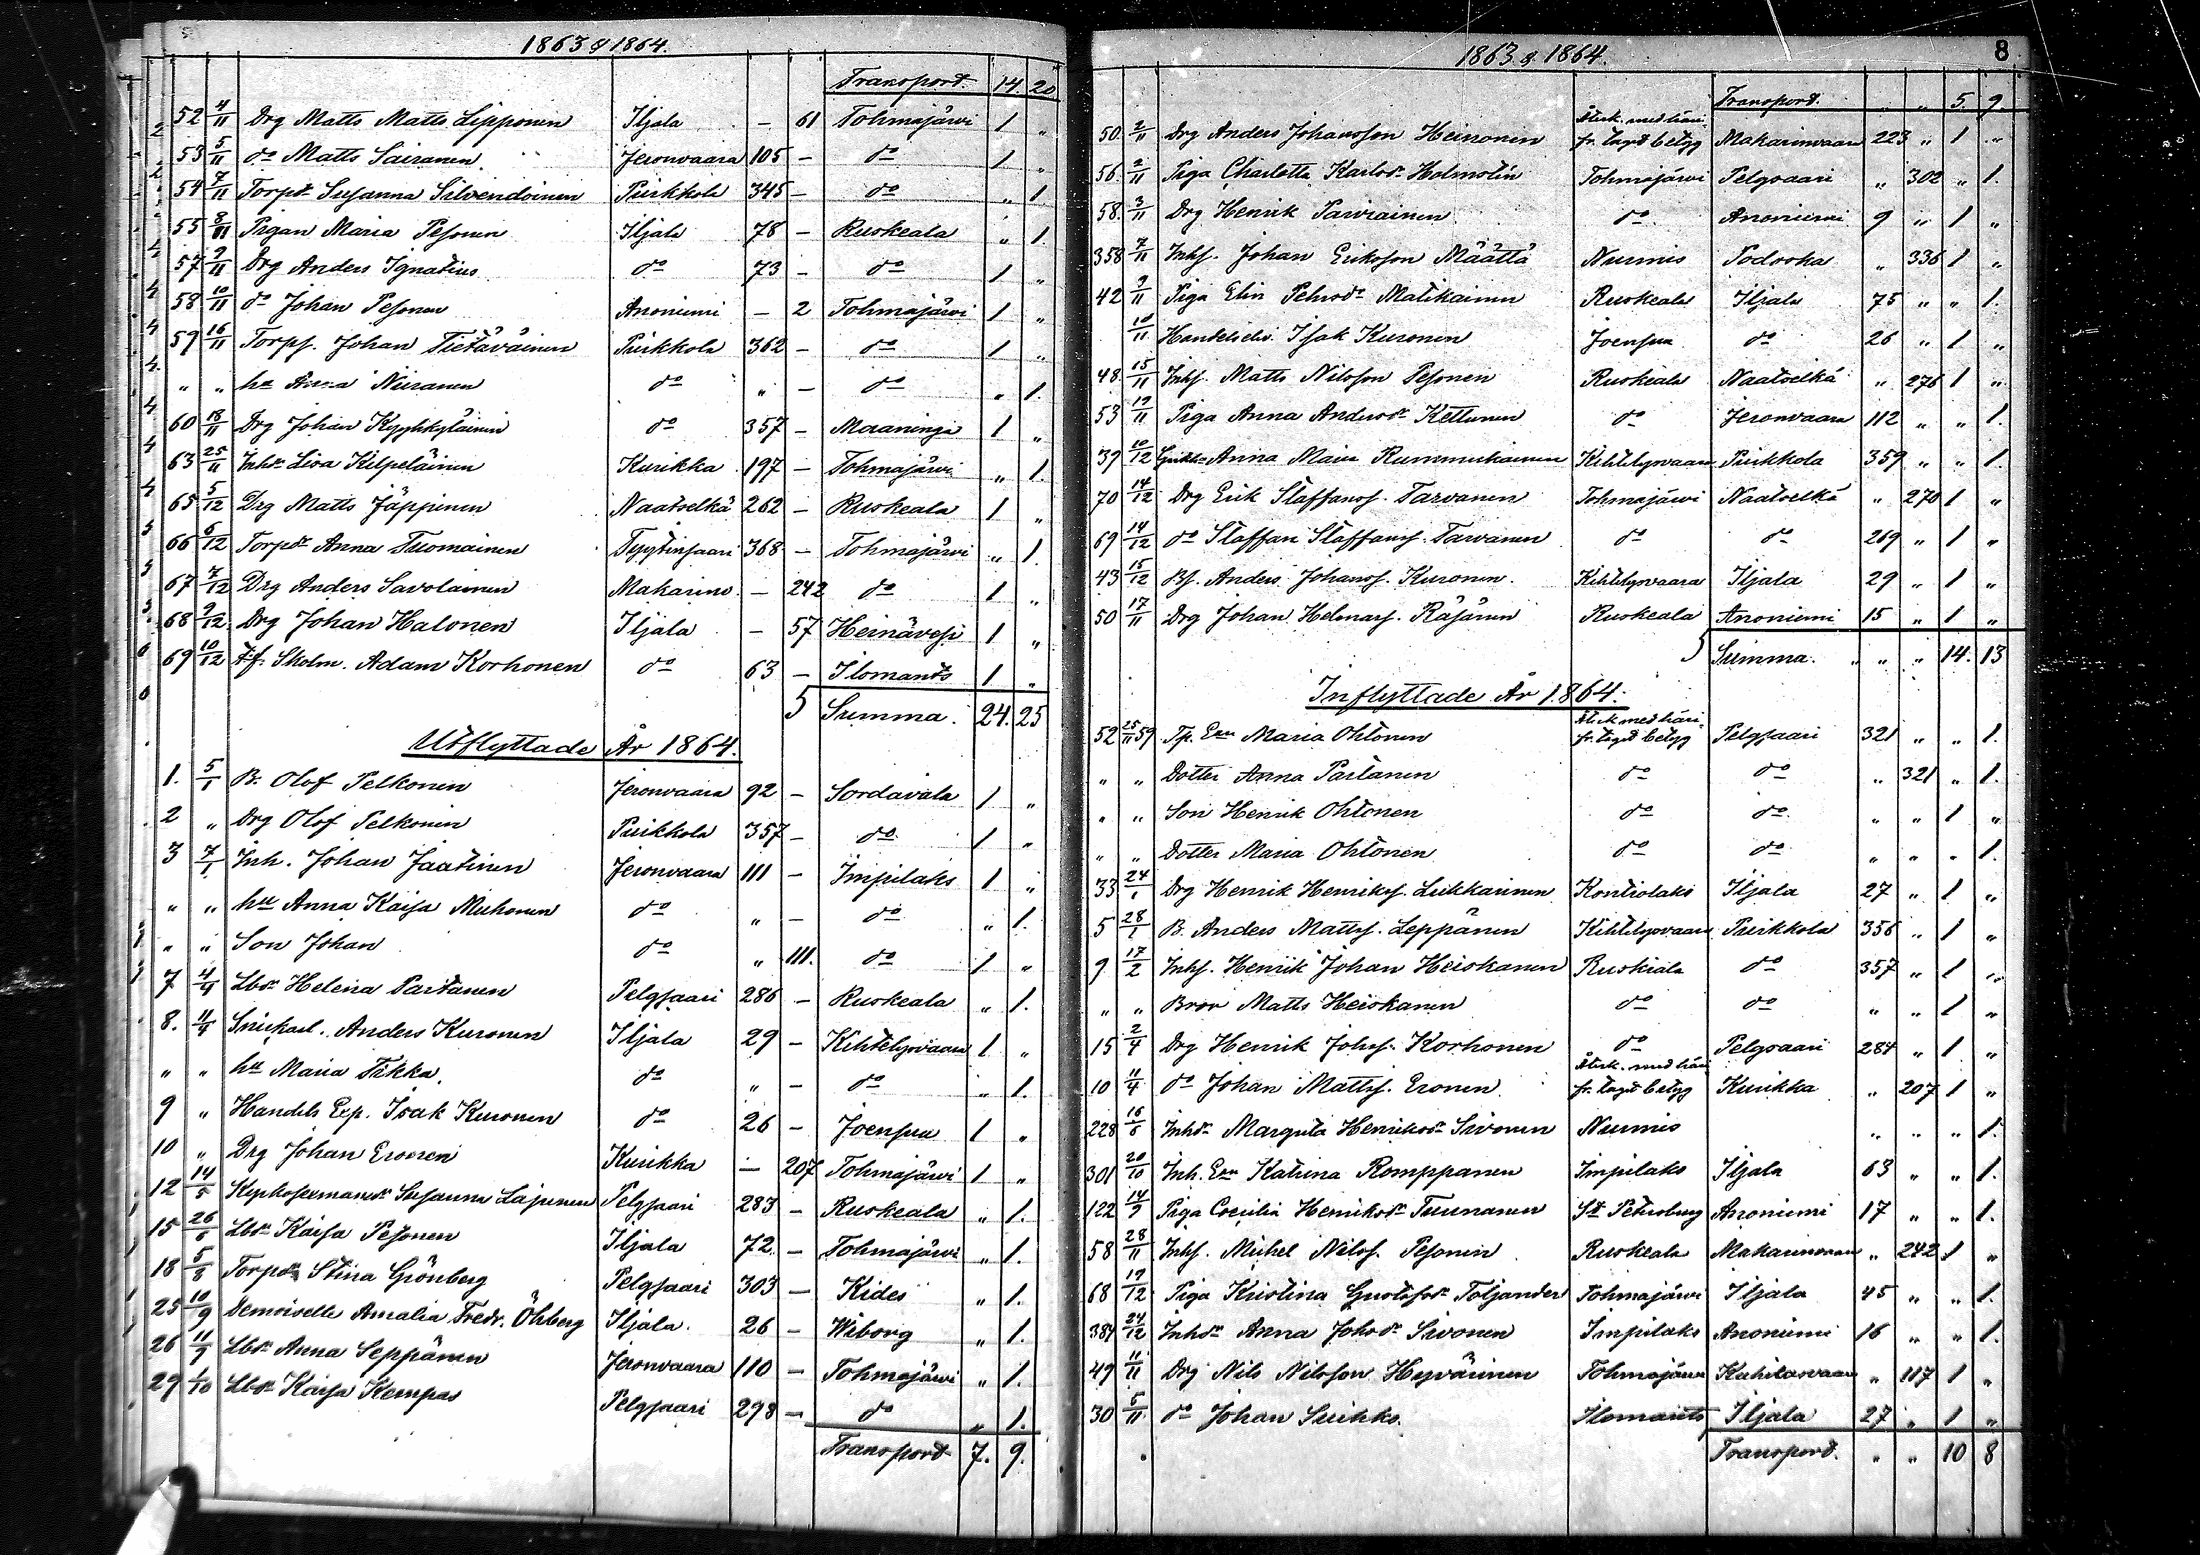 1863 & 1864.
Transport 14. 20
52 4/11 Drg Matts Matts Lipponen Iljala — 61 Tohmajärvi 1 „
53 5/11 do Matts Sairanen Jeronvaara 105 — do 1 „
54 7/11 Torpdr Susanna Silvendoinen Puikkola 345 — do „ 1
55 8/11 Pigan Maria Pesonen Iljala 78 — Ruskeala „ 1.
57 9/11 Drg Anders Ignatius do 73 — do 1 „
58 10/11 do Johan Pesonen Anoniemi — 2 Tohmajärvi 1 „
59 16/11 Torpf. Johan Tietäväinen Puikkola 362 — do 1 „
„ „ hu Anna Niiranen do „ — do „ 1.
60 18/11 Drg Johan do 357 — Maaninga 1 „
63 25/11 Inhdr Lisa Kilpeläinen Kurikka 197 — Tohmajärvi „ 1.
65 5/12 Drg Matts Jäppinen Naatselkä 262 — Ruskeala 1 „
66 6/12 Torpdr Anna Tuomainen 368 — Tohmajärvi „ 1.
67 7/12 Drg Anders Savolainen Makarino — 242 do 1 „
68 9/12 Drg Johan Halonen Iljala — 57 Heinävesi 1 „
69 10/12 Skolm. Adam Korhonen do 63 — Ilomants 1 „
5 Summa. 24. 25
Utflyttade År 1864.
1. 5/1 B. Olof Pelkonen Jeronvaara 92 — Sordavala 1 „
2 „ Drg Olof Pelkonen Puikkola 357 — do 1 „
3 7/1 Inh. Johan Jaatinen Jeronvaara 111 — Impilaks 1 „
„ „ hu Anna Kaisa Muhonen do „ — do „ 1.
„ „ Son Johan do „ 111. do 1 „
7 4/4 Lbdr Helena Partanen Pelgjaari 286 — Ruskeala „ 1.
8. 11/4 Snickarl. Anders Kuronen Iljala 29 — Kihtelysvaara 1 „
„ „ hu Maria Tikka. do „ — do „ 1.
9 „ Handels Exp. Isak Kuronen do 26 — Joensuu 1 „
10 „ Drg Johan Eronen Kurikka — 207 Tohmajärvi 1 „
12 14/5 Susanna Lajunen Pelgjaari 283 — Ruskeala „ 1.
15 26/6 Lbdr Kaisa Pesonen Iljala 72 — Tohmajärvi „ 1.
18 5/8 Torpdr Stina Grönberg Pelgjaari 303 — Kides „ 1.
25 10/9 Demoiselle Amalia Fredr. Öhberg Iljala. 26 — Wiborg „ 1.
26 11/9 Lbdr Anna Seppänen Jeronvaara 110 — Tohmajärvi „ 1.
29 1/10 Lbdr Kaisa Kempas Pelgjaari 298 — do „ 1.
Transport 7. 9.
1863 & 1864.
8
Transport. „ 5. 9.
50. 2/11 Drg Anders Johansson Heinonen Återk. med häri- fr. tagit betyg Makarinvaara 223 „ 1 „
56. 2/11 Piga Charlotta Karlsdr Holmstén Tohmajärvi Pelgsaari „ 302 „ 1.
58. 3/11 Drg Henrik Parviainen do Anoniemi 9 „ 1 „
358 7/11 Inhs. Johan Eriksson Määttä Nurmis „ 336 1 „
42 9/11 Piga Elin Petersdr Matikainen Ruskeala Iljala 75 „ „ 1.
10/11 Isak Kuronen Joensuu do 26 „ 1 „
48 15/11 Inhs. Matts Nilsson Pesonen Ruskeala Naatselkä „ 276 1 „
53 19/11 Piga Anna Andersdr Kettunen do Jeronvaara 112 „ „ 1.
39 10/12 Anna Maria Kihtelysvaara Puikkola 359 „ „ 1.
70 14/12 Drg Erik Staffanss. Tarvanen Tohmajärvi Naatselkä „ 270 1 „
69 14/12 do Staffan Staffanss. Tarvanen do do 269 „ 1 „
43 15/12 Bs. Anders Johanss. Kuronen. Kihtelysvaara Iljala 29 „ 1 „
50 17/11 Drg Johan Räsänen Ruskeala Anoniemi 15 „ 1 „
5 Summa. „ „ „ 14. 13
Inflyttade År 1864.
52 25/11 59 Tp. Enn Maria Ohtonen Återk med häri- fr. tagit betyg Pelgjaari 321 „ „ 1.
„ „ Dotter Anna Partanen do do „ 321 „ 1.
„ „ Son Henrik Ohtonen do do „ „ 1 „
„ „ Dotter Maria Ohtonen do do „ „ „ 1.
33 24/1 Drg Henrik Henrikss. Liikkarinen Kontiolaks Iljala 27 „ 1 „
5 28/1 B. Anders Mattss. Leppänen Kihtelysvaara Puikkola 356 „ 1 „
9 17/2 Inhs. Henrik Johan Heiskanen Ruskeala do 357 „ 1 „
„ „ Bror Matts Heiskanen do do „ „ 1 „
15 2/4 Drg Henrik Johss. Korhonen do Pelgsaari 284 „ 1 „
10 11/4 do Johan Mattss. Eronen Återk. med häri fr. tagit betyg Kurikka „ 207 1 „
228 16/6 Inhdr Margreta Henriksdr Sivonen Nurmis „ „ „ 1.
301 20/10 Inh. Enn Katrina Romppanen Impilaks Iljala 63 „ „ 1.
122 14/9 Piga Coecilia Henriksdr Tuunanen St Petersburg Anoniemi 17 „ „ 1.
58 28/11 Inhs. Michel Nilss. Pesonen Ruskeala Makarinvaara „ 242 1 „
68 19/12 Piga Kristina Gustafsdr Toljander Tohmajärvi Iljala 45 „ „ 1.
384 24/12 Inhdr Anna Johsdr Sivonen Impilaks Anoniemi 16 „ „ 1.
49 11/11 Drg Nils Nilsson Hyvärinen Tohmajärvi Kuhilasvaara „ 117 1 „
30 5/11 do Johan Suihko. Ilomants Iljala 27 „ 1 „
Transport. „ „ 10 8